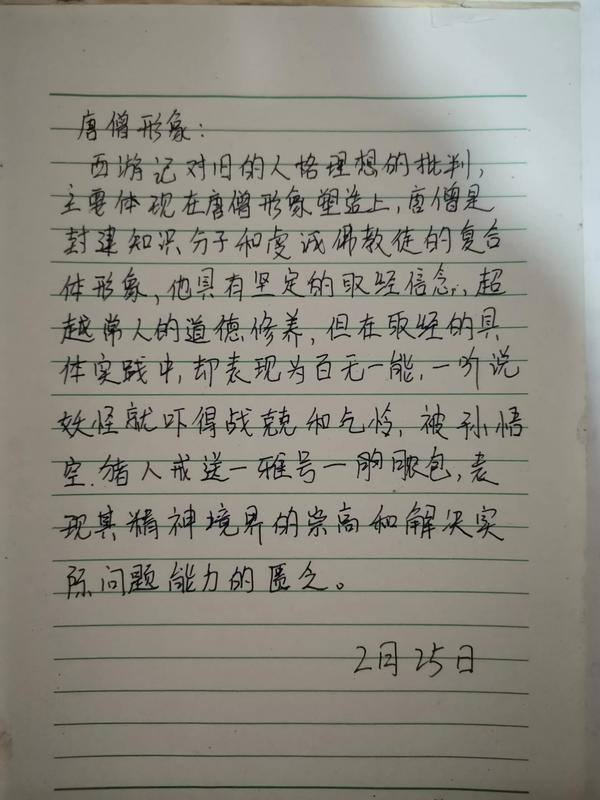 唐僧形象：
西游记对旧的人格理想的批判，
主要体现在唐僧形象塑造上，唐僧是
封建知识分子和虔诚佛教徒的复合
体形象，他具有坚定的取经信念，超
越常人的道德修养，但在取经的具
体实践中，却表现为百无一能，一听说
妖怪就吓得战兢和乞怜，被孙悟
空.猪八戒送一雅号一脓包，表
现其精神境界的崇高和解决实
际问题能力的匮乏。
2月25日